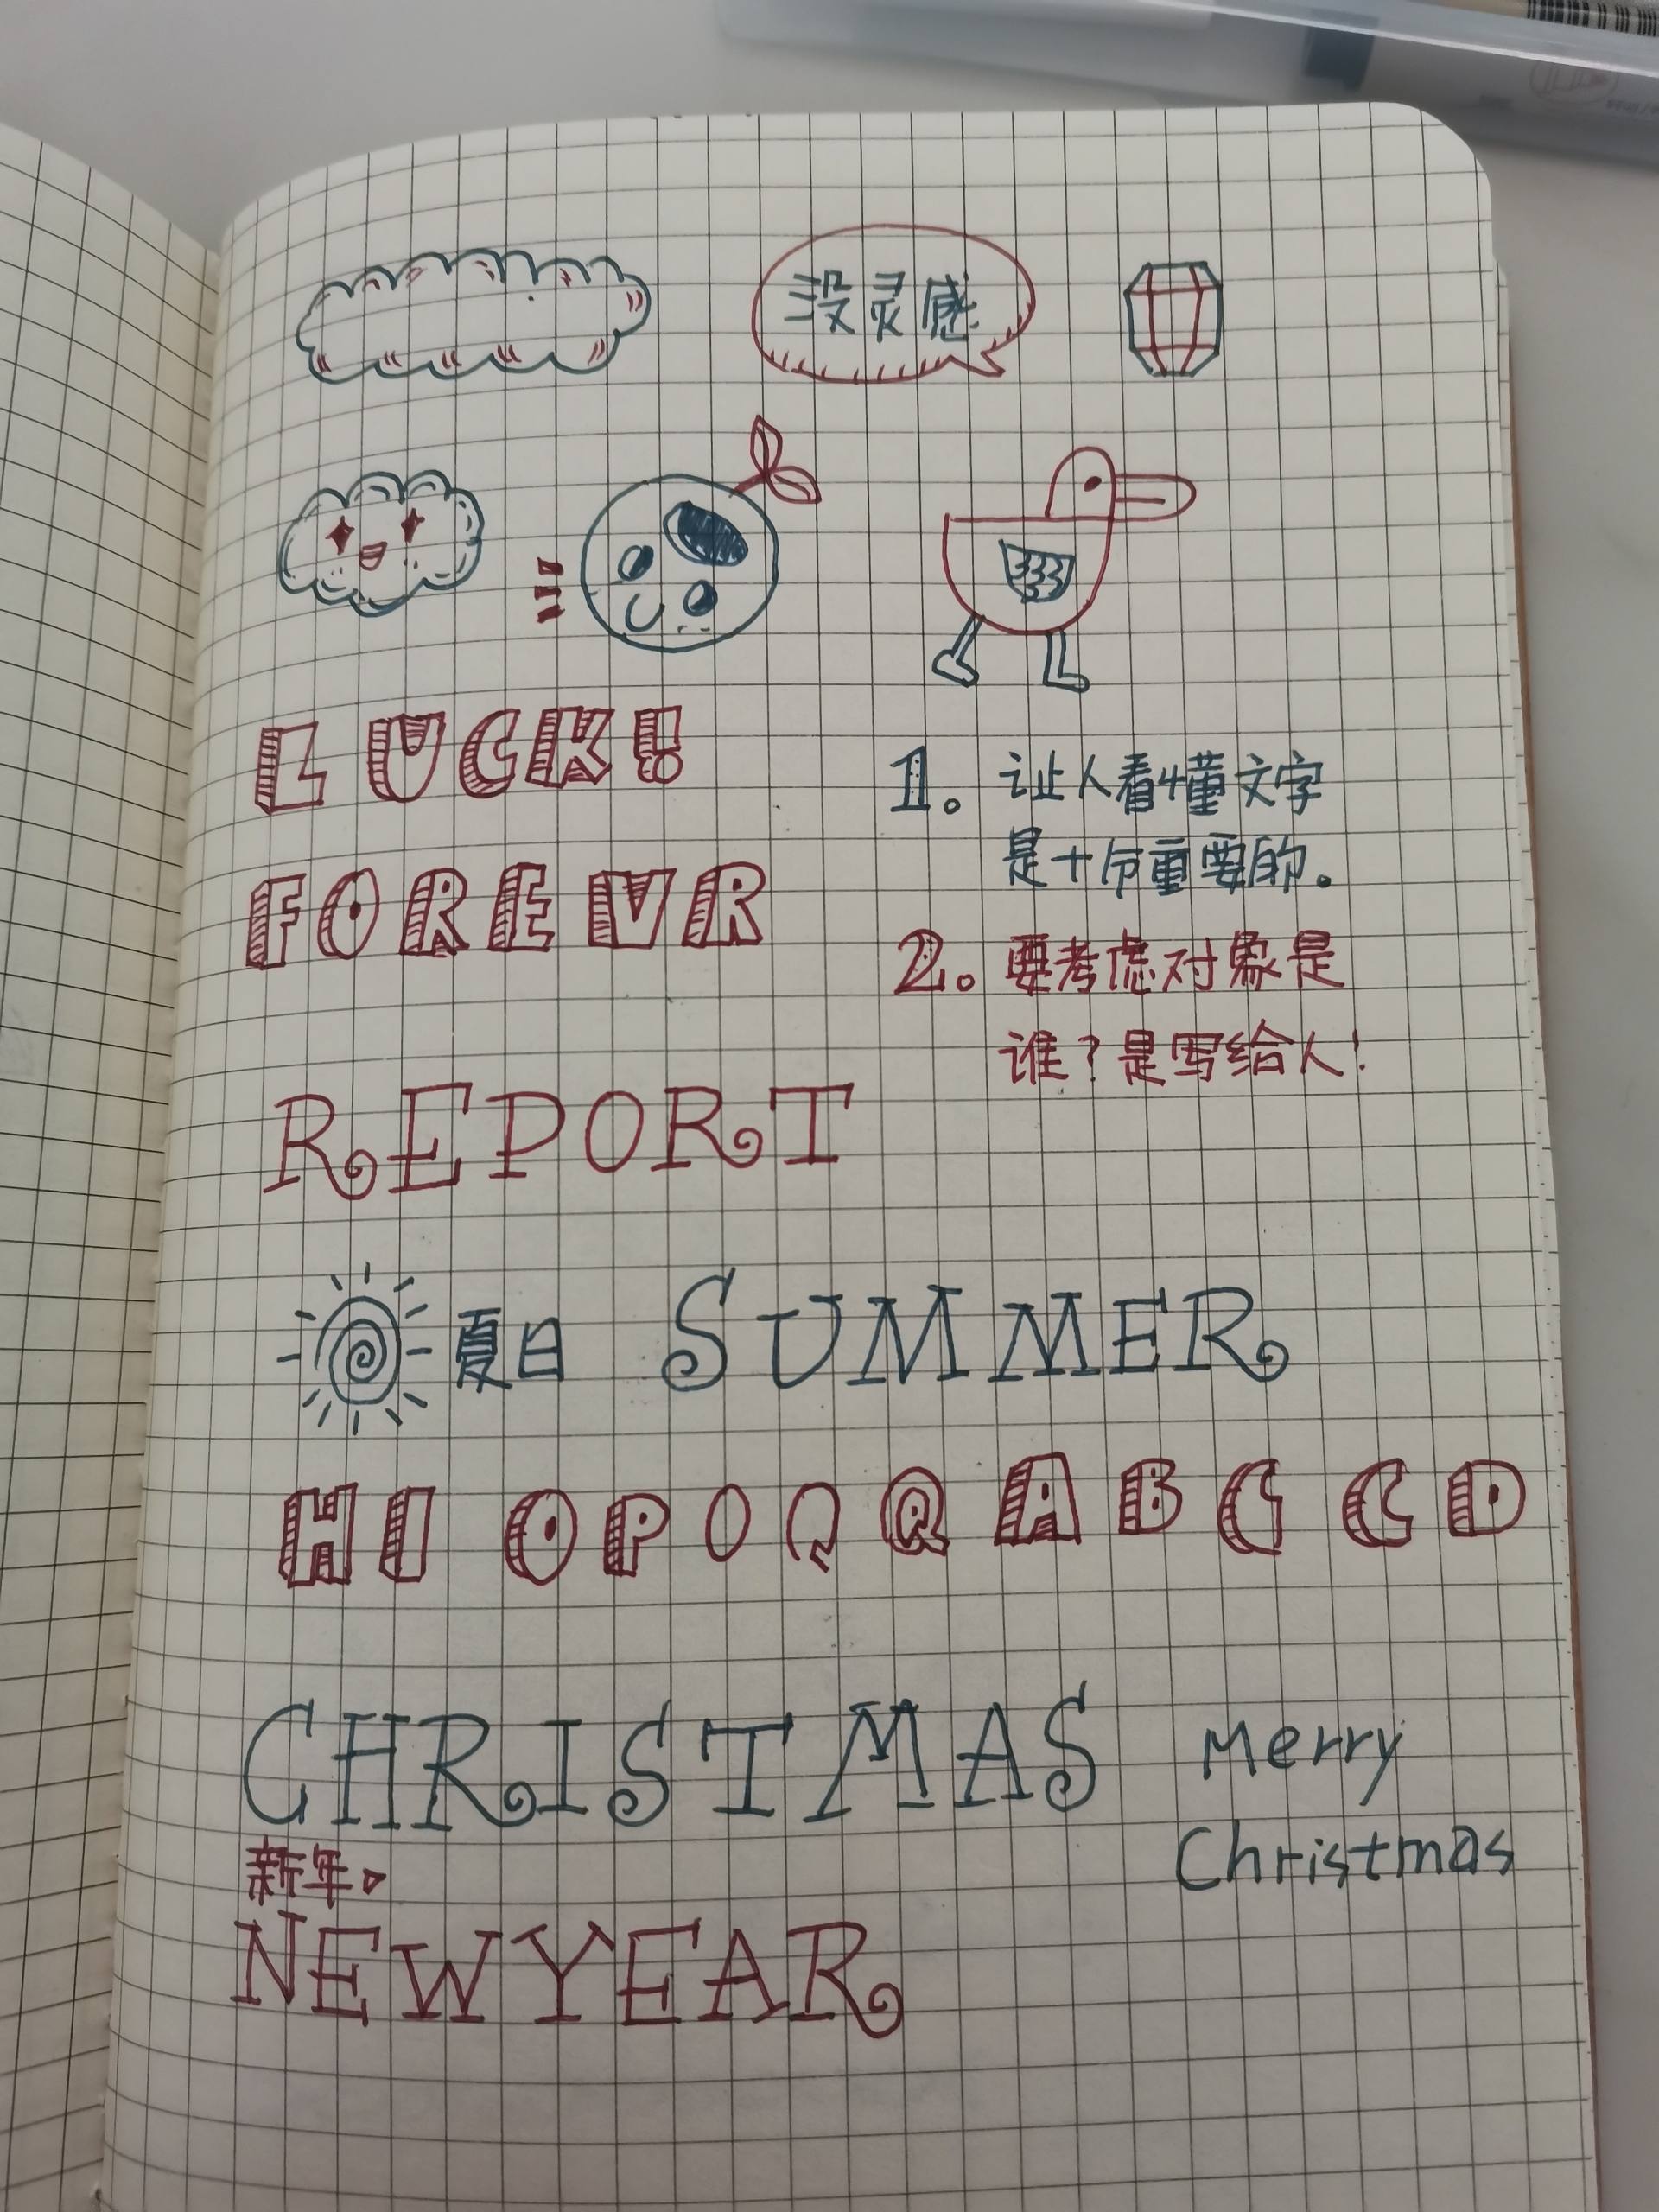 没灵感
LUCK!
FOREVR
1。让人看懂文字
是十分重要的。
2。要考虑对象是
谁？是写给人！
REPORT
夏日 SUMMER
HI OPOQQABCCD
CHRISTMAS
Merry
Christmas
新年
NEWYEAR